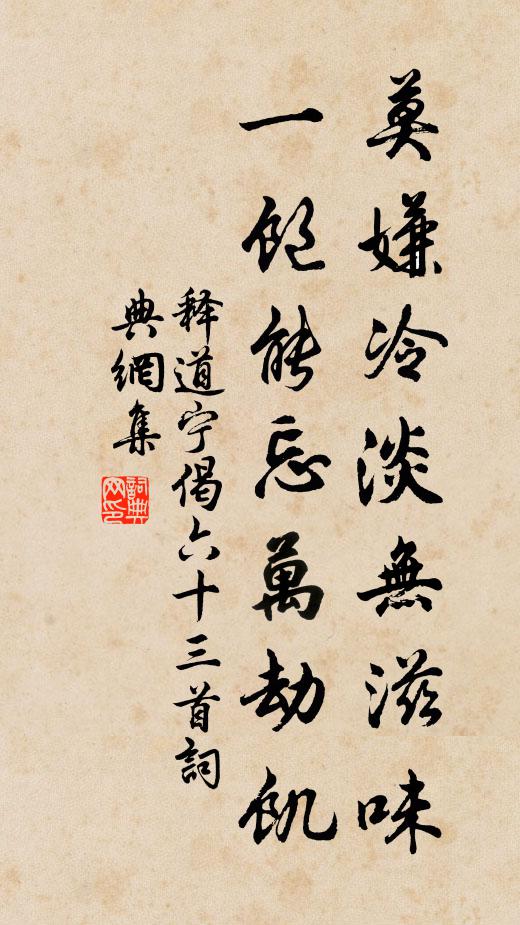 莫嫌冷淡無滋味
一飽能忘萬劫飢
释道宁偈六十三首詞
典網集
詞典
网印